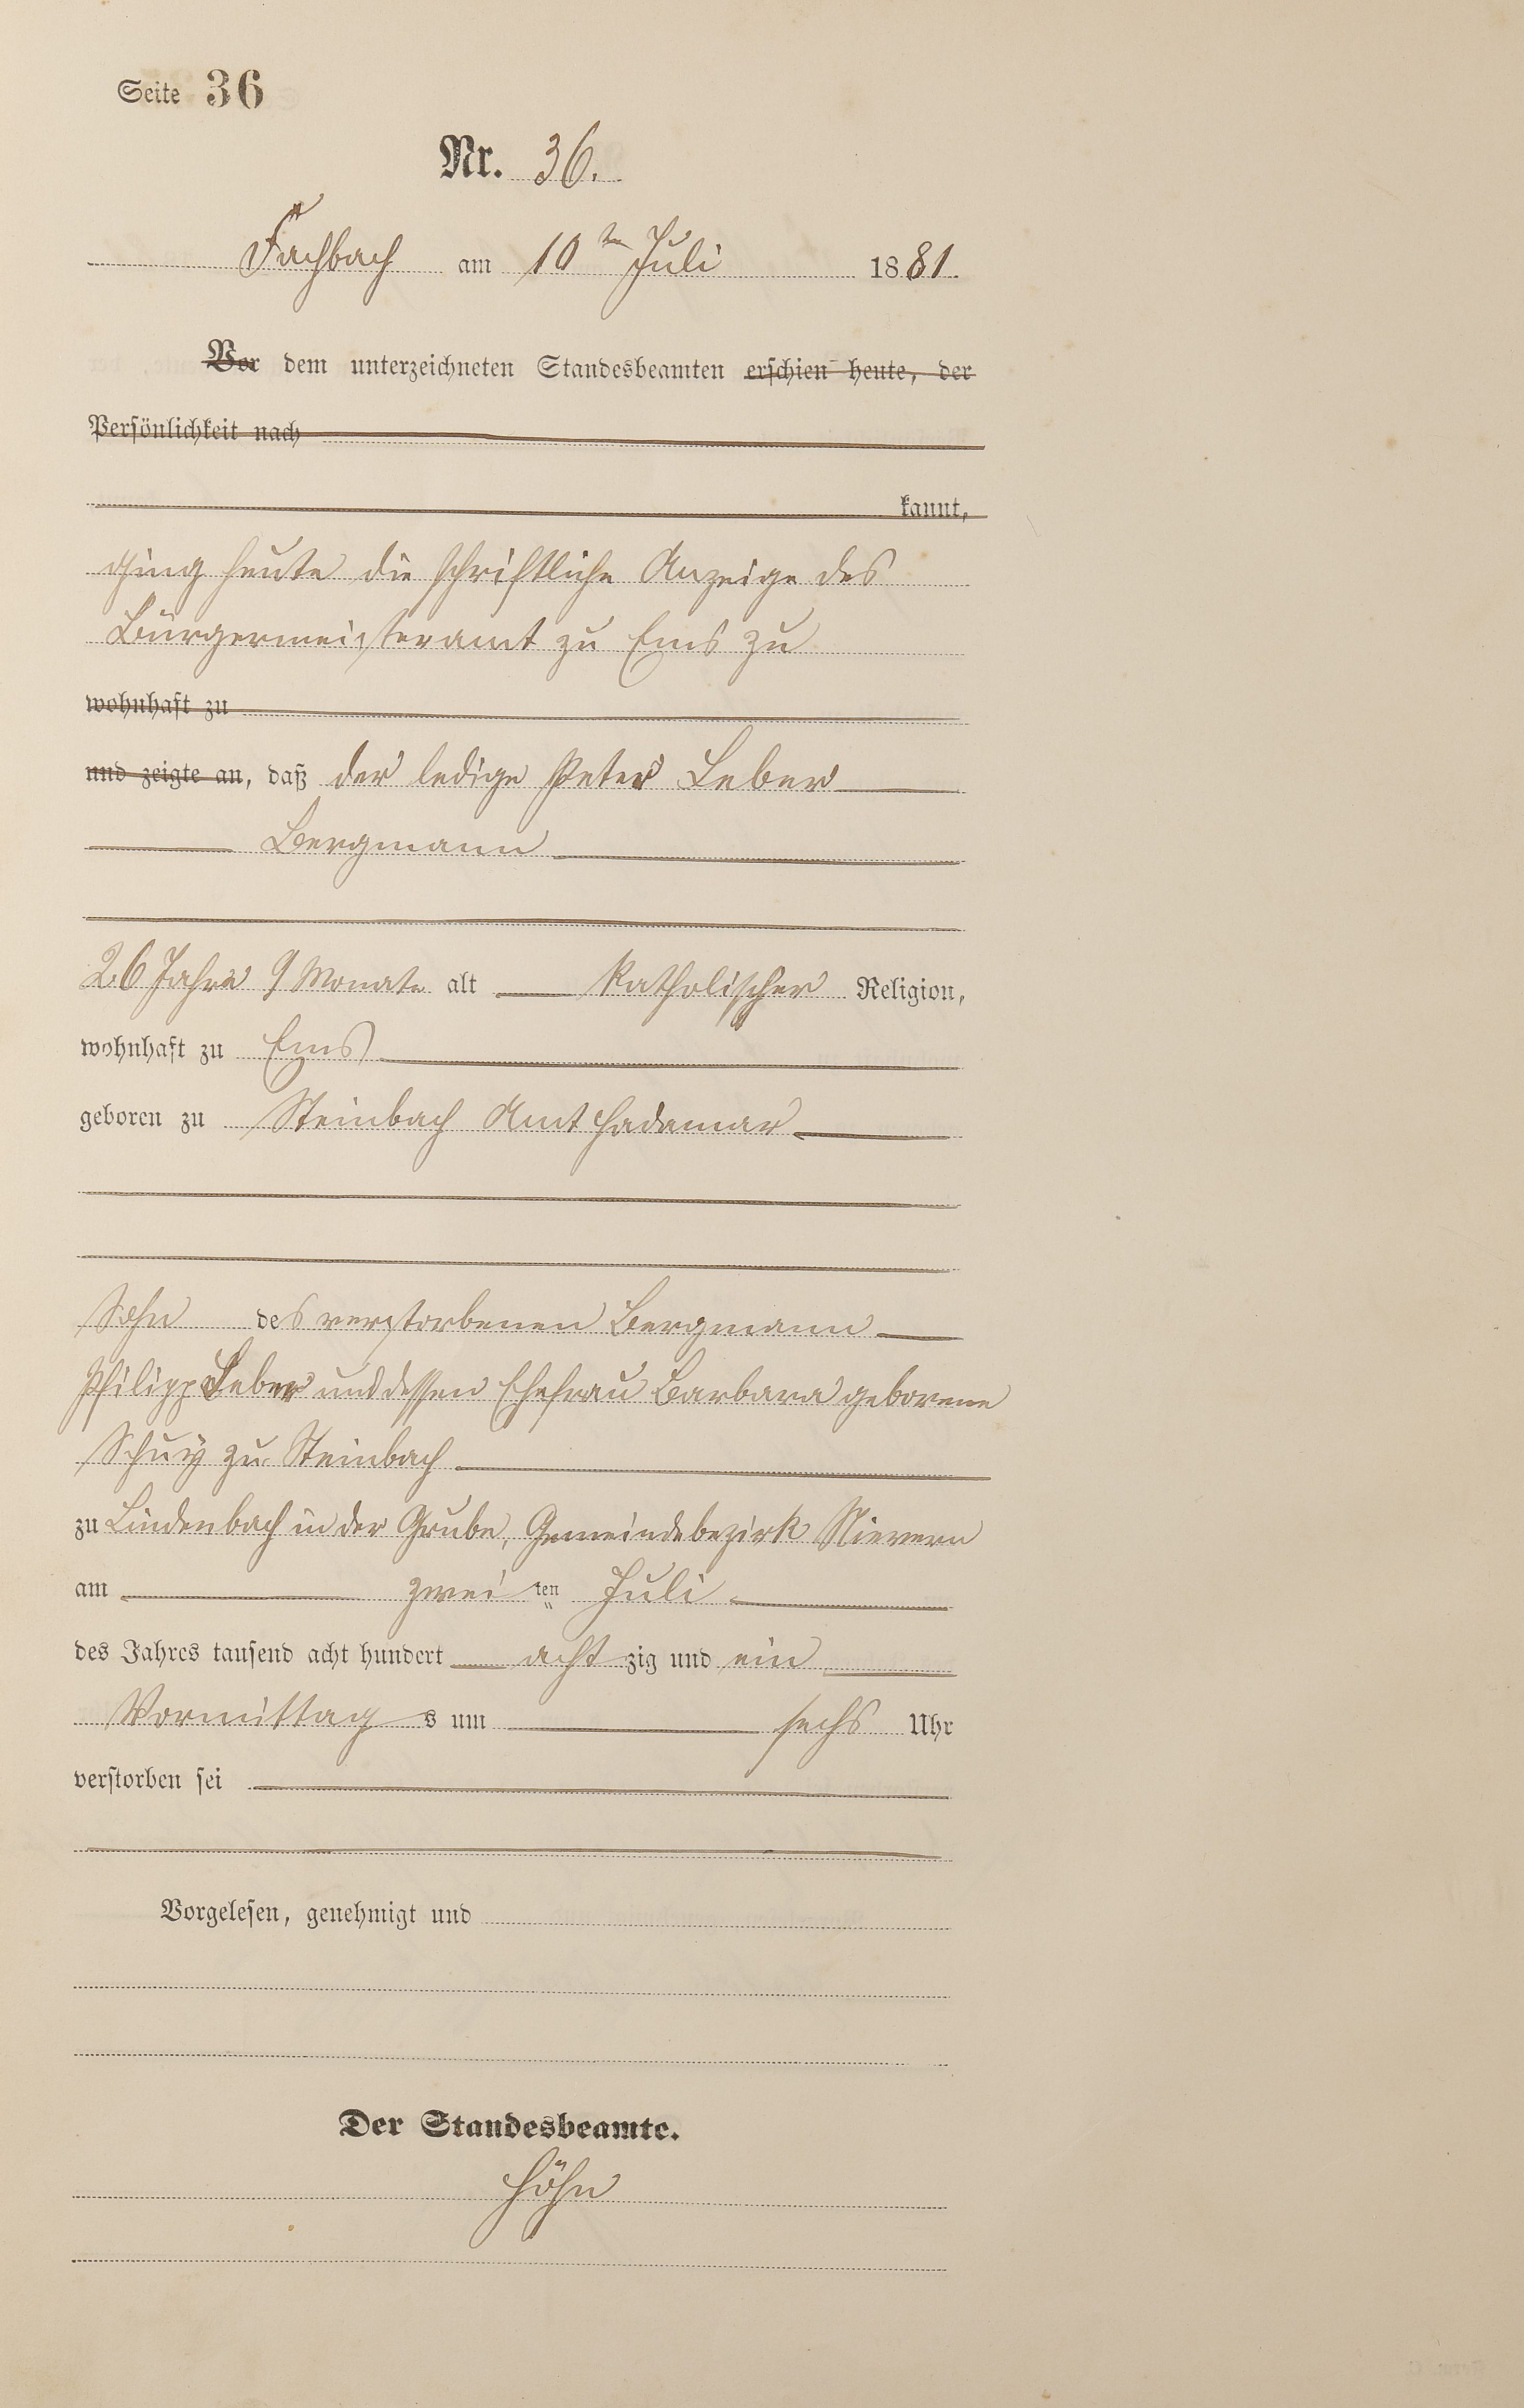 Seite 36
Nr. 36.
Fachbach am 10ten Juli 1881.
Vor dem unterzeichneten Standesbeamten erschien heute, der
Persönlichkeit nach
kannt,
ging heute die schriftliche Anzeige des
Bürgermeisteramt zu Ems zu
wohnhaft zu
und zeigte an, daß der ledige Peter Leber
Bergmann
26 Jahre 9 Monate alt katholischer Religion,
wohnhaft zu Ems
geboren zu Steinbach Amt Hadamar
Sohn des verstorbenen Bergmann
Philipp Leber und dessen Ehefrau Barbara geborene
Schuy zu Steinbach
zu Lindenbach in der Grube, Gemeindebezirk Nievern
am zwei ten Juli
des Jahres tausend acht hundert acht zig und ein
Vormittag s um sechs Uhr
verstorben sei
Vorgelesen, genehmigt und
Der Standesbeamte.
Höhn